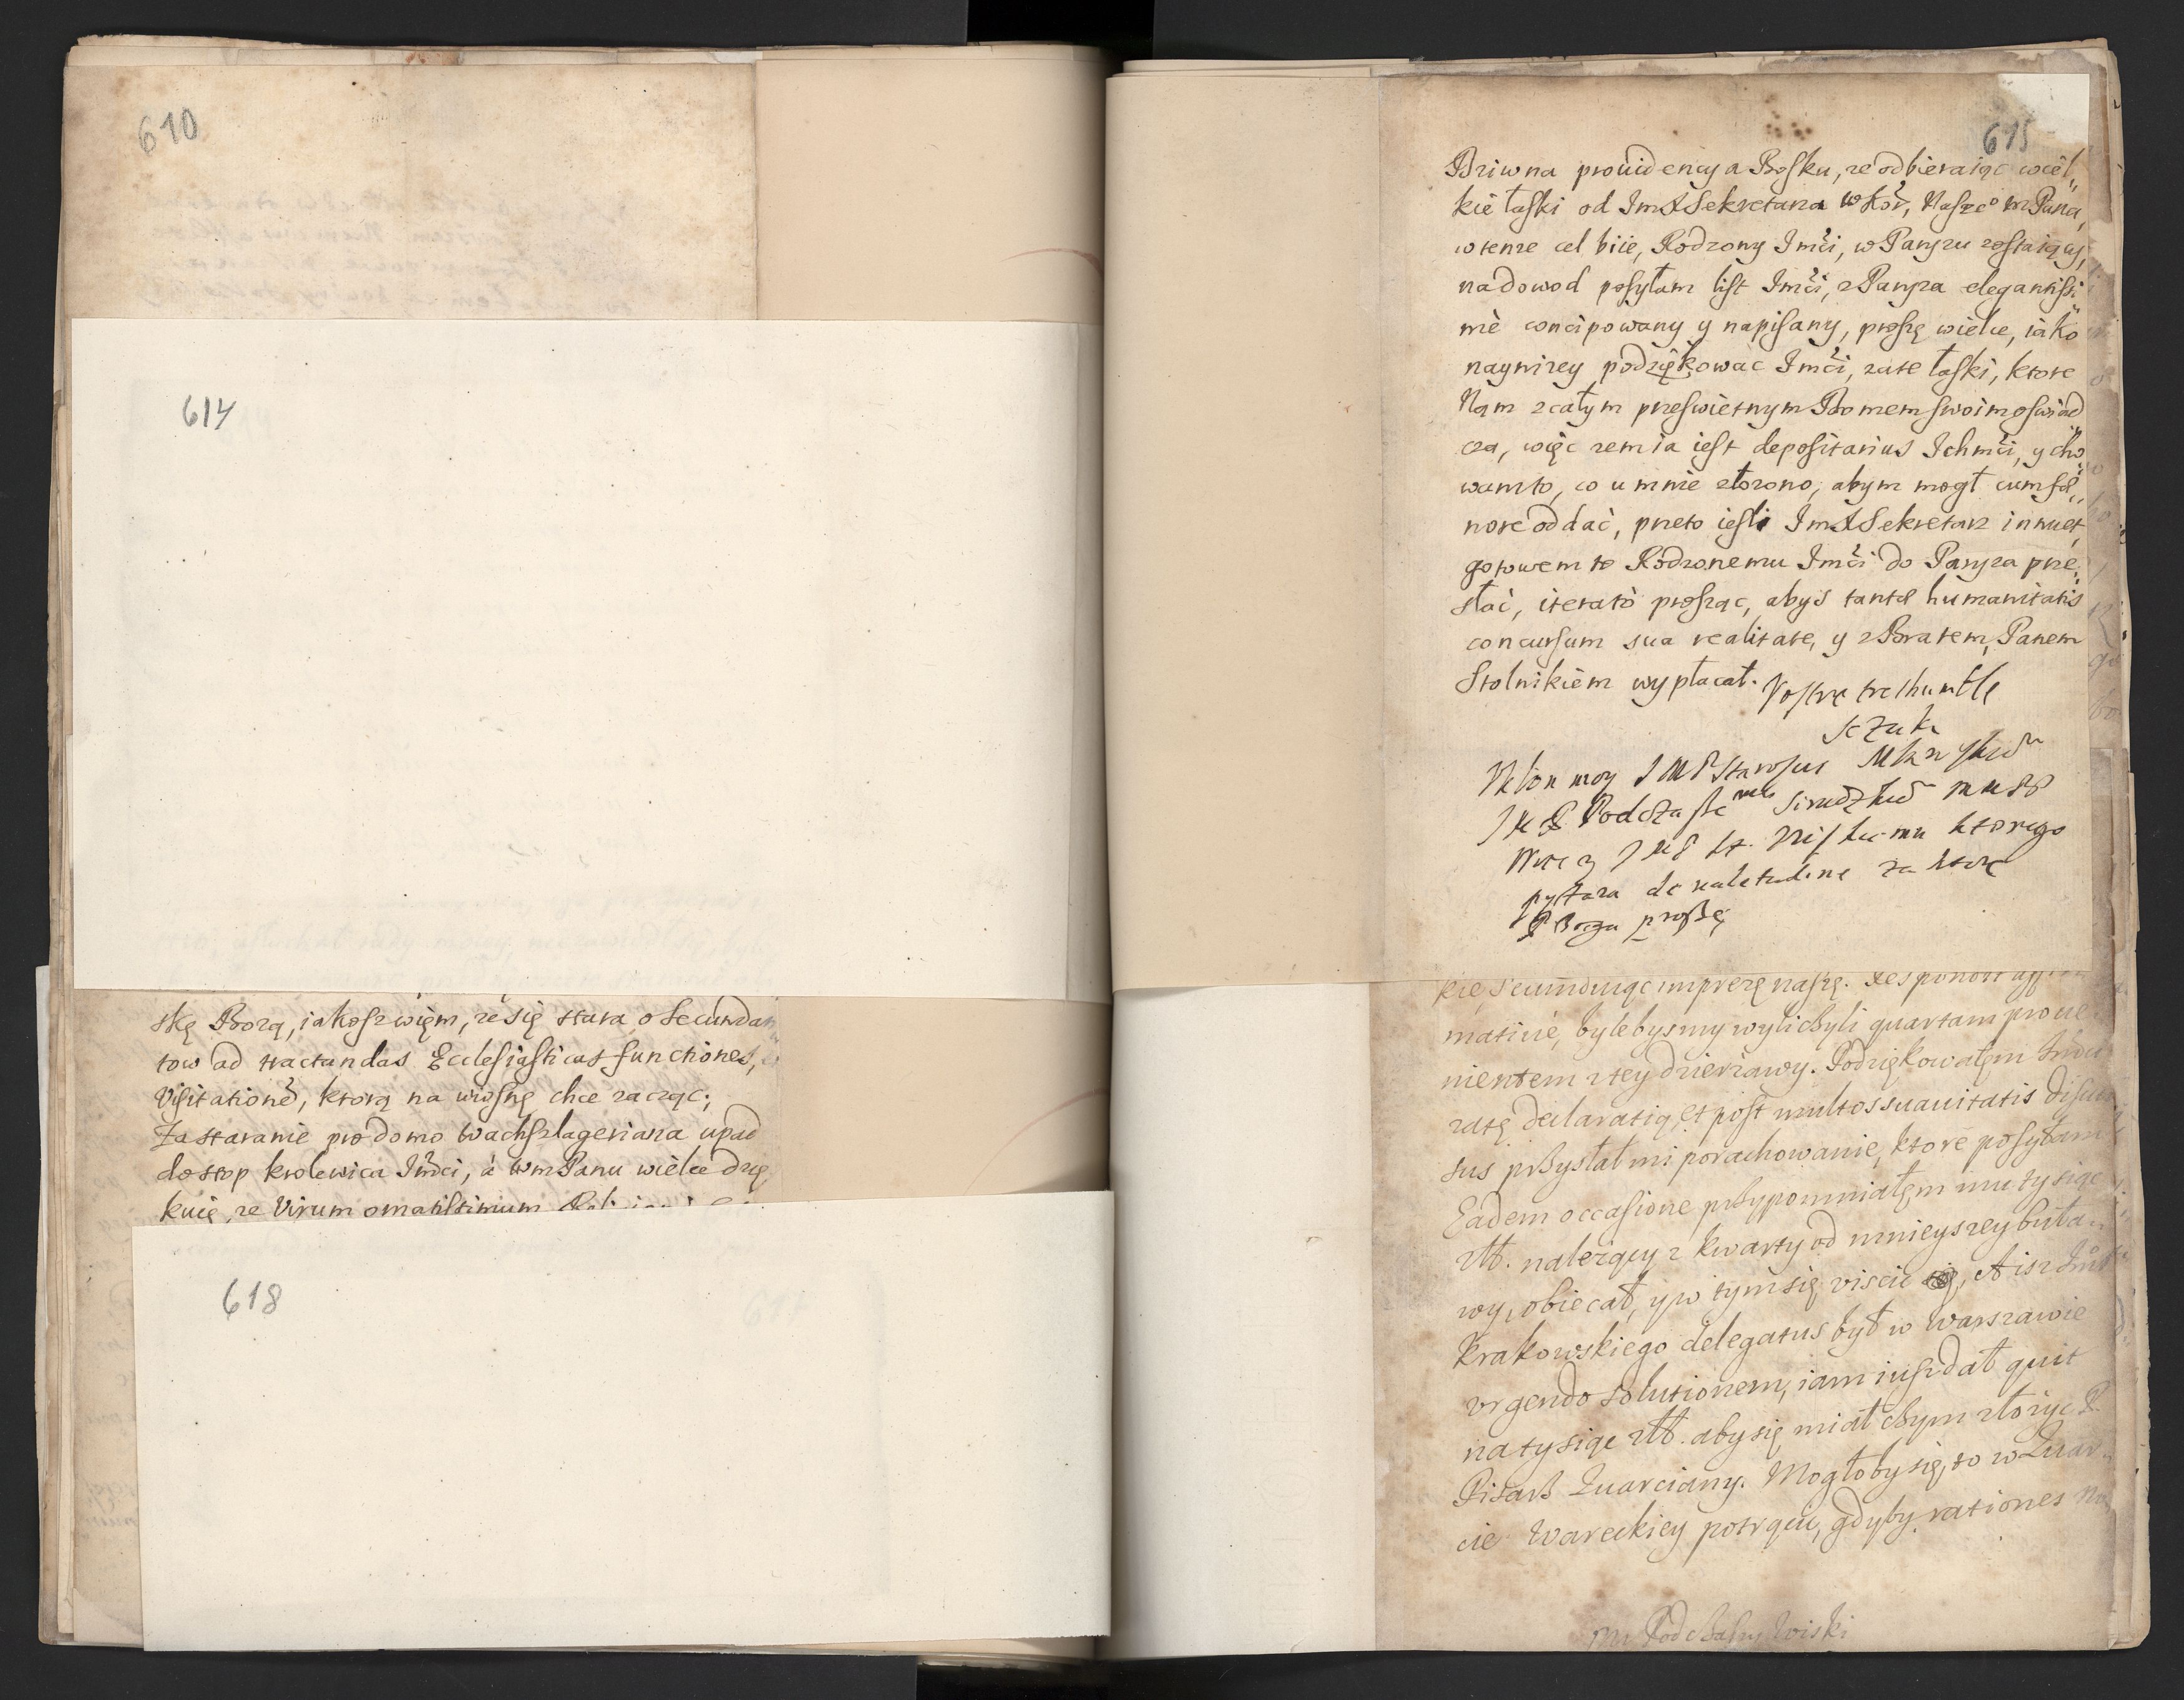 610
614
skę Bozą, iakosz wiem, że się stara o Secundan
tow ad tractandas Ecclesiasticas functiones,
Visitationē, ktorą na wiosnę chce zacząc;
Za staranie pro domo Wachszlageriana upad
do stop krolewica Imści, à WmPanu wielce dzię
kuię, że Virum ornatissimum
618
615
Dziwna prouidencya Boska, że odbieraiąc wiel„
kie łaski od ImX Sekretarza WKor, Naszego mPana,
w tenże cel biie, Rodzony Imći, w Paryzu zostaiący,
na dowod posyłam list Imći, z Paryza elegantissi„
mè concipowany y napisany, proszę wielce, iako
naynizey podziękowac Imći, za te łaski, ktore
Nam z całym prześwietnym Domem swoim oświad
cza, więc zem ia iest depositarius Ichmći, y cho„
wam to, co u mnie złozono, abym mogł cum fæ„
nore oddać, przeto iesli ImX Sekretarz innuet,
gotowem to Rodzonemu Imći do Paryza prze„
słać, iteratò prosząc, abyś tantæ humanitatis
concursum sua realitate, y z Bratem, Panem
Stolnikiem wypłacał. Vostre tres humble
Sczuka
Uklon moy IMP Staroscie
IMP Podczasze
IMP ktorego
pytara de valetudine za ktorę
P Boga proszę
kie secunduiąc imprezę naszę. Respondit
matiuè, bylebysmy wyliczyli quartam proue
nientem z tey dzierżawy. Podziękowałem
za tę declaratią, et post multos suauitatis discur
sus przysłał mi porachowanie, ktore posyłam
Eadem occasione przypomniałem mu tysiąc
złł. nalezący z kwarty od mnieyszey buła„
wy, obiecał, y w tym się viscic, A isz
Krakowskiego delegatus był w Warszawie
vrgendo solutionem, iam iusz dał quit
na tysiąc złł. aby się miał czym złożyc P.
Pisarz Quarciany. Mogłoby się to w Quar„
cie Wareckiey potrącic, gdyby rationes na